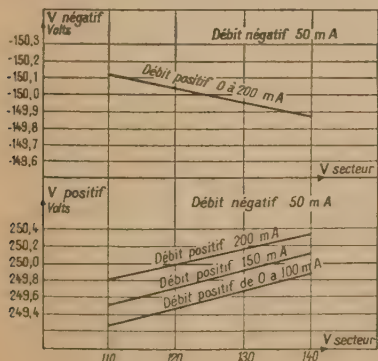 V négatif
Volts
Débit négatif 50 mA
-150,3
-150,2
-150,1
-150,0
-149,9
-149,8
-149,6
Débit positif 0 à 200 mA
V secteur
V positif
Volts
Débit négatif 50 mA
250,4
250,2
250,0
249,8
249,6
249,4
Débit positif 200 mA
Débit positif 150 mA
Débit positif de 0 à 100 mA
V secteur
110
120
130
140